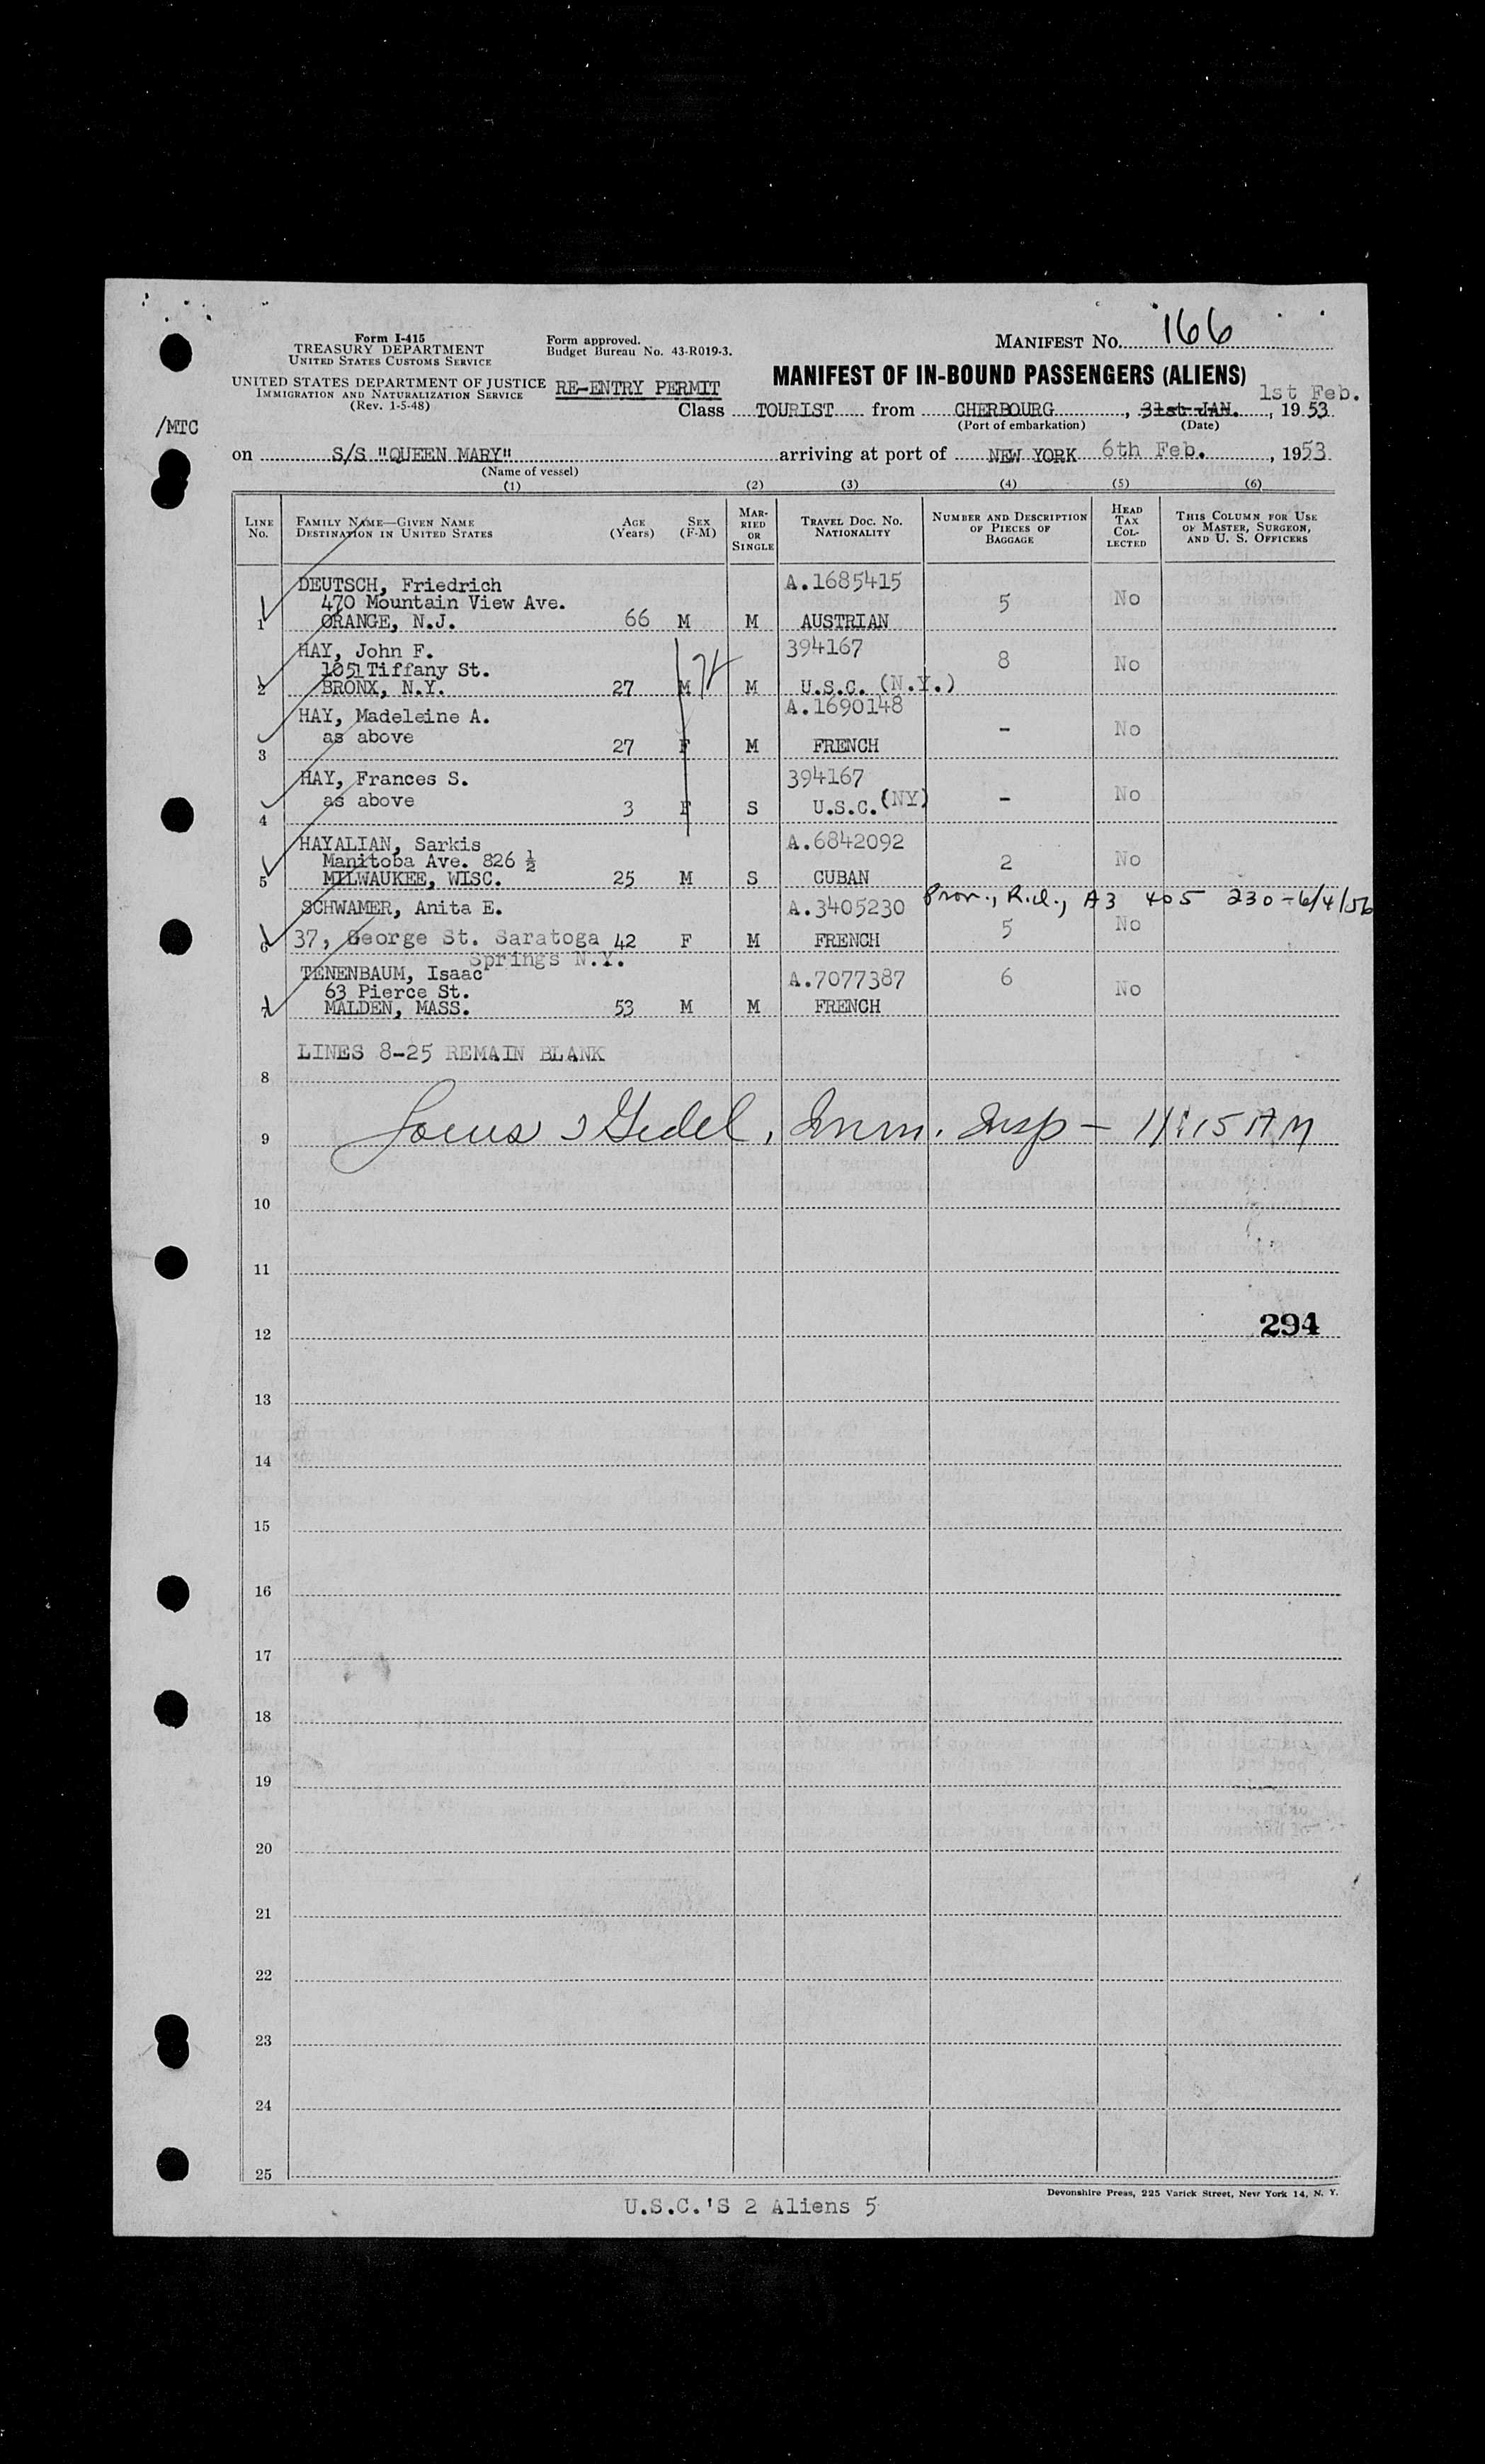 Form I-415
TREASURY DEPARTMENT
UNITED STATES CUSTOMS SERVICE
UNITED STATES DEPARTMENT OF JUSTICE
IMMIGRATION AND NATURALIZATION SERVICE
(Rev. 1-5-48)
Form approved.
Budget Bureau No. 43-R019-3.
RE-ENTRY PERMIT
MANIFEST NO. 166
MANIFEST OF IN-BOUND PASSENGERS (ALIENS)
1st Feb.
Class TOURIST from CHERBOURG, 31st JAN., 1953
(Port of embarkation) (Date)
/MTC
on S/S "QUEEN MARY" arriving at port of NEW YORK 6th Feb., 1953
(Name of vessel)
(1) (2) (3) (4) (5) (6)
LINE No. FAMILY NAME—GIVEN NAME DESTINATION IN UNITED STATES AGE (Years) SEX (F-M) MARRIED OR SINGLE TRAVEL DOC. NO. NATIONALITY NUMBER AND DESCRIPTION OF PIECES OF BAGGAGE HEAD TAX COLLECTED THIS COLUMN FOR USE OF MASTER, SURGEON, AND U. S. OFFICERS
DEUTSCH, Friedrich A.1685415
470 Mountain View Ave. 5 No
1 ORANGE, N.J. 66 M M AUSTRIAN
HAY, John F. 394167
1051 Tiffany St. 8 No
2 BRONX, N.Y. 27 M M U.S.C. (N.Y.)
HAY, Madeleine A. A.1690148
as above - No
3 27 F M FRENCH
HAY, Frances S. 394167
as above - No
4 3 F S U.S.C. (NY)
HAYALIAN, Sarkis A.6842092
Manitoba Ave. 826 ½ 2 No
5 MILWAUKEE, WISC. 25 M S CUBAN
SCHWAMER, Anita E. A.3405230 A3 405 230-6/4/56
5 No
6 37, George St. Saratoga 42 F M FRENCH
Springs N.Y.
TENENBAUM, Isaac A.7077387 6
63 Pierce St. No
7 MALDEN, MASS. 53 M M FRENCH
LINES 8-25 REMAIN BLANK
8
9 Imm. Insp - 11:15 AM
10
11
12 294
13
14
15
16
17
18
19
20
21
22
23
24
25
Devonshire Press, 225 Varick Street, New York 14, N. Y.
U.S.C.'S 2 Aliens 5